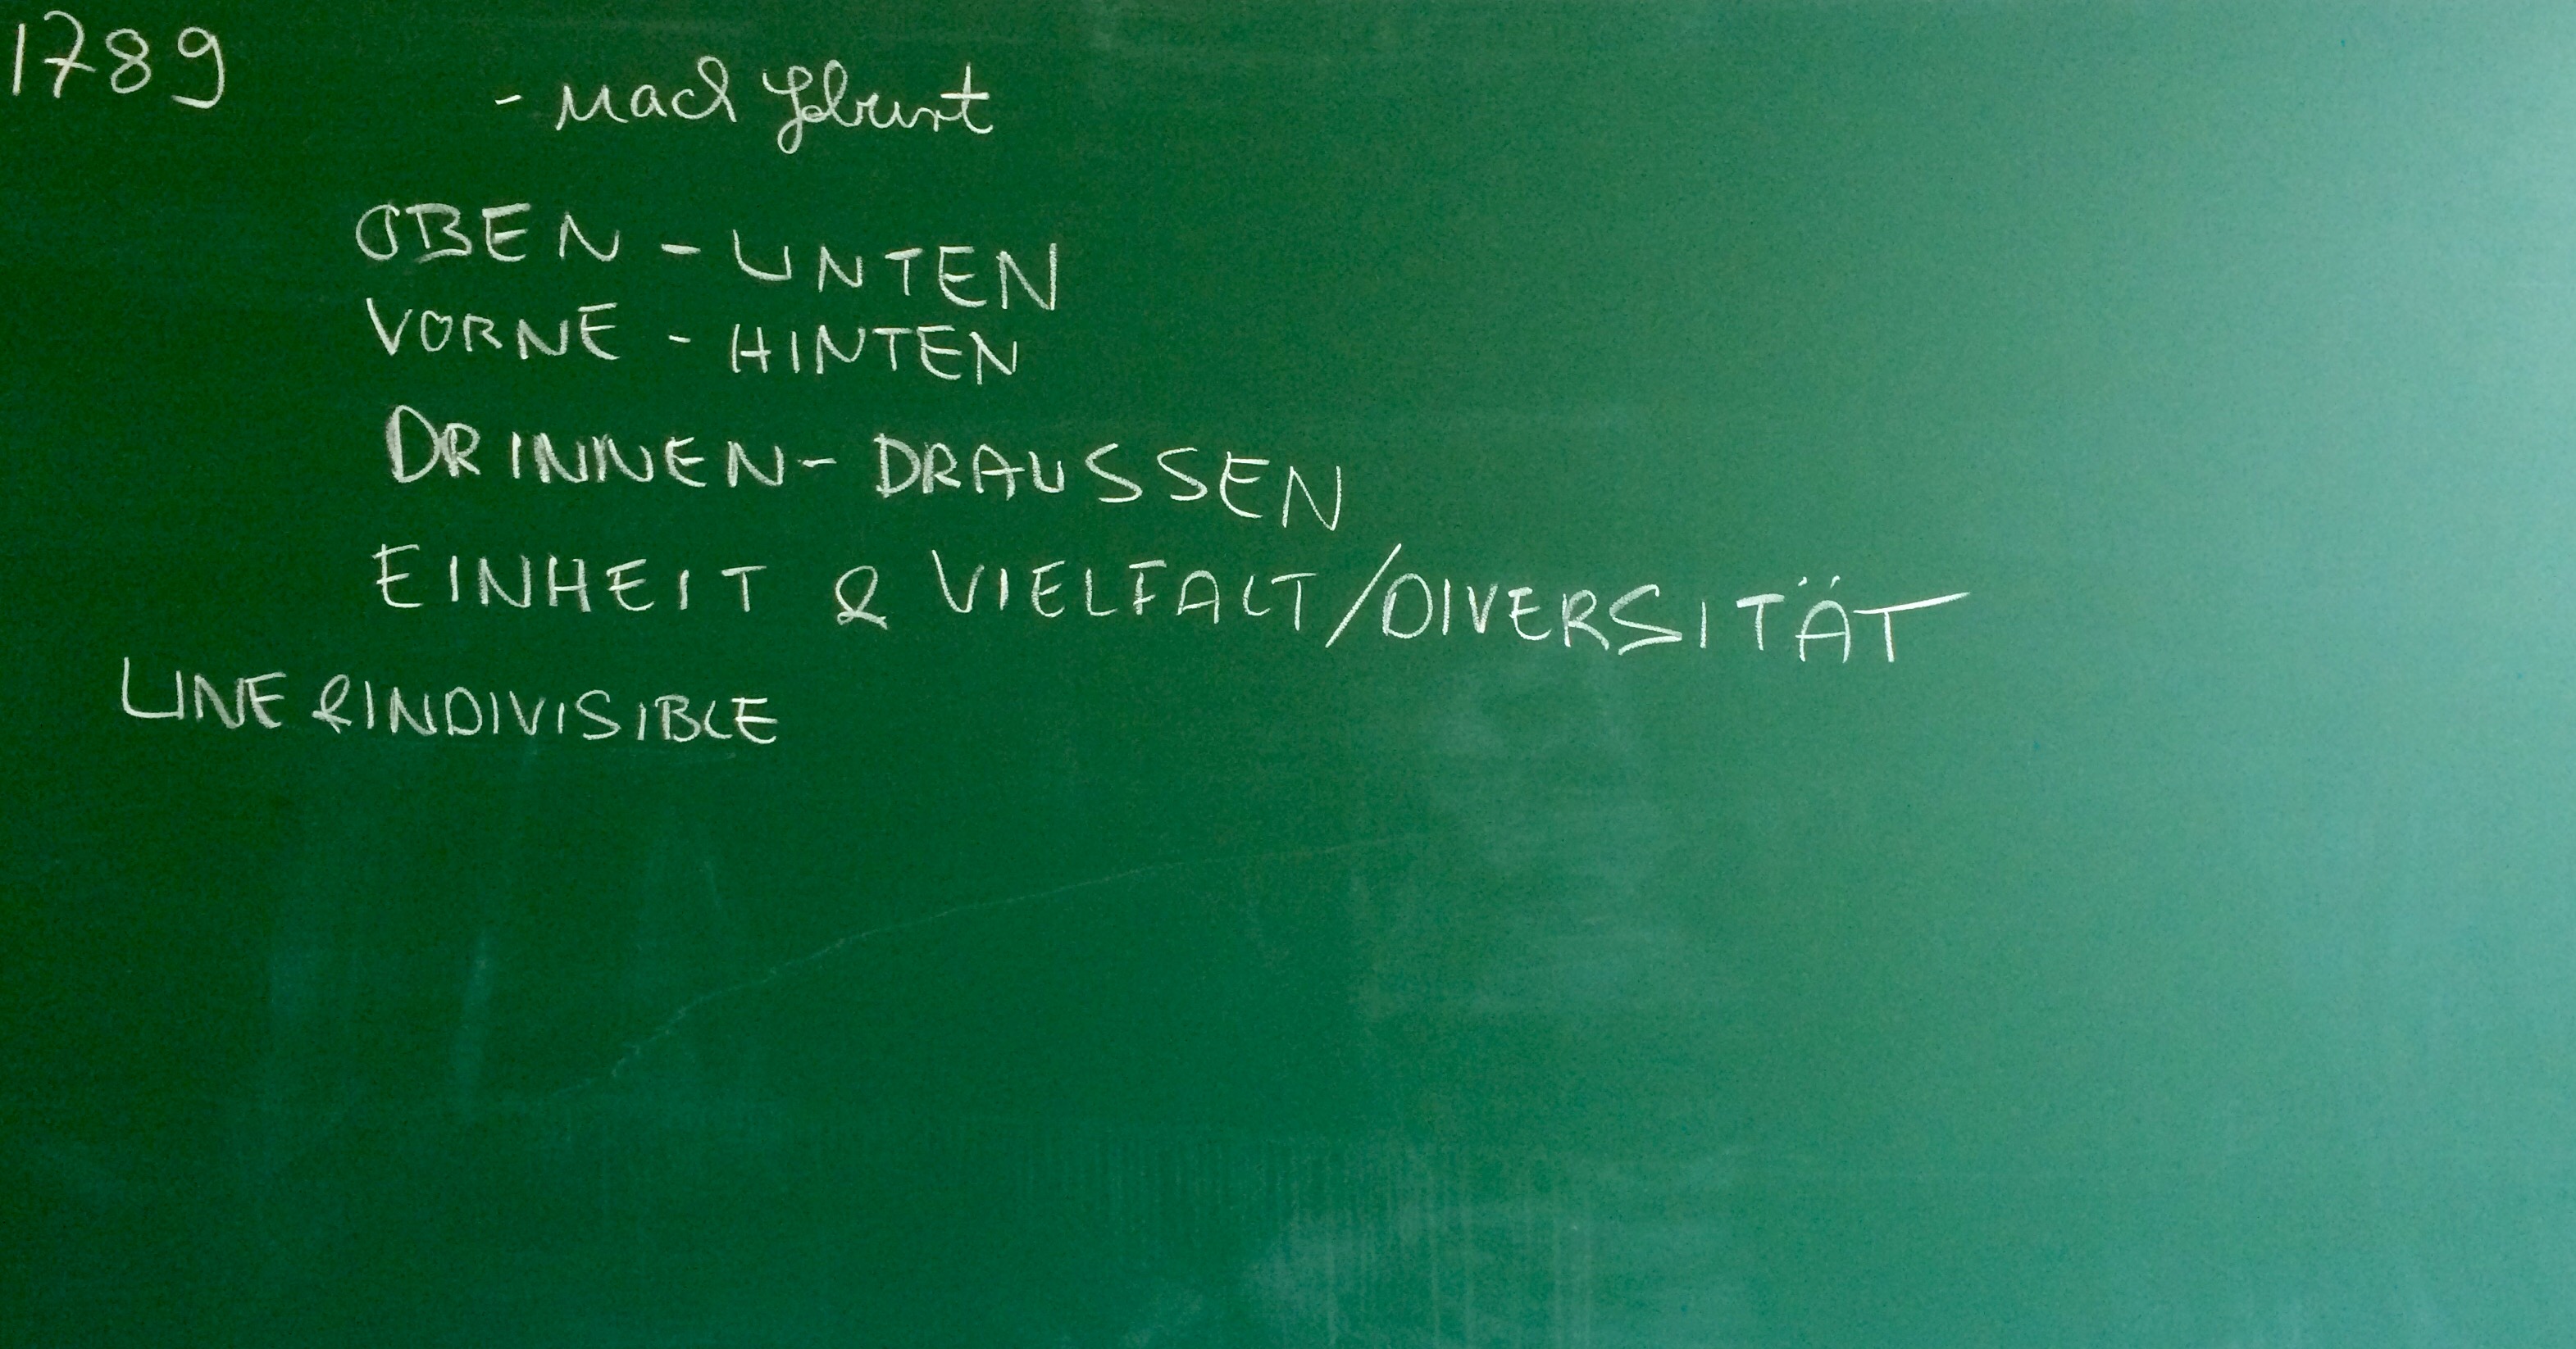 1789
- nach Geburt
OBEN - UNTEN
VORNE - HINTEN
DRINNEN - DRAUSSEN
EINHEIT & VIELFALT/DIVERSITÄT
UNE & INDIVISIBLE